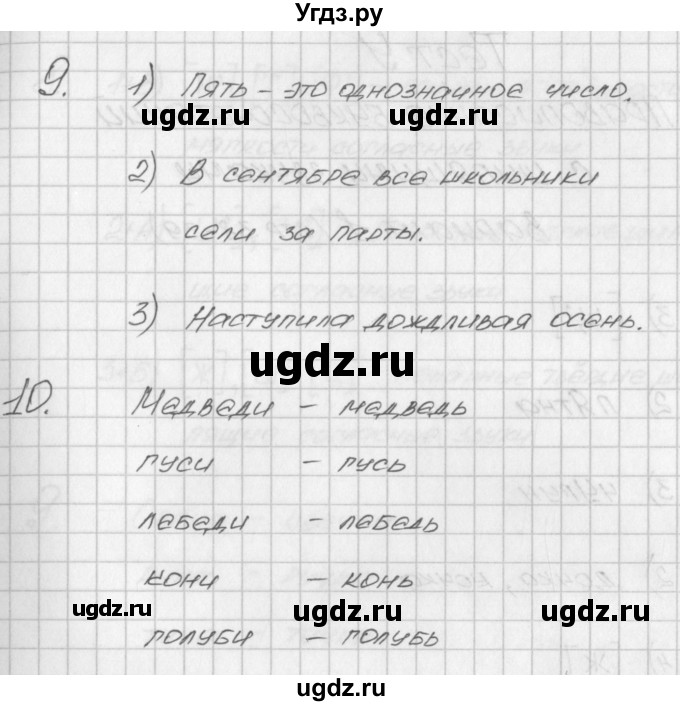 Угдз.ру
9. 1) Пять – это однозначное число.
ugdz.ru ugdz.ru
2) В сентябре все школьники
сели за парты.
3) Наступила дождливая осень.
ugdz.ru
10. Медведи – медведь
гуси – гусь
ugdz.ru
лебеди – лебедь
кони – конь
ugdz.ru ugdz.ru ugdz.ru
голуби – голубь
ugdz.ru